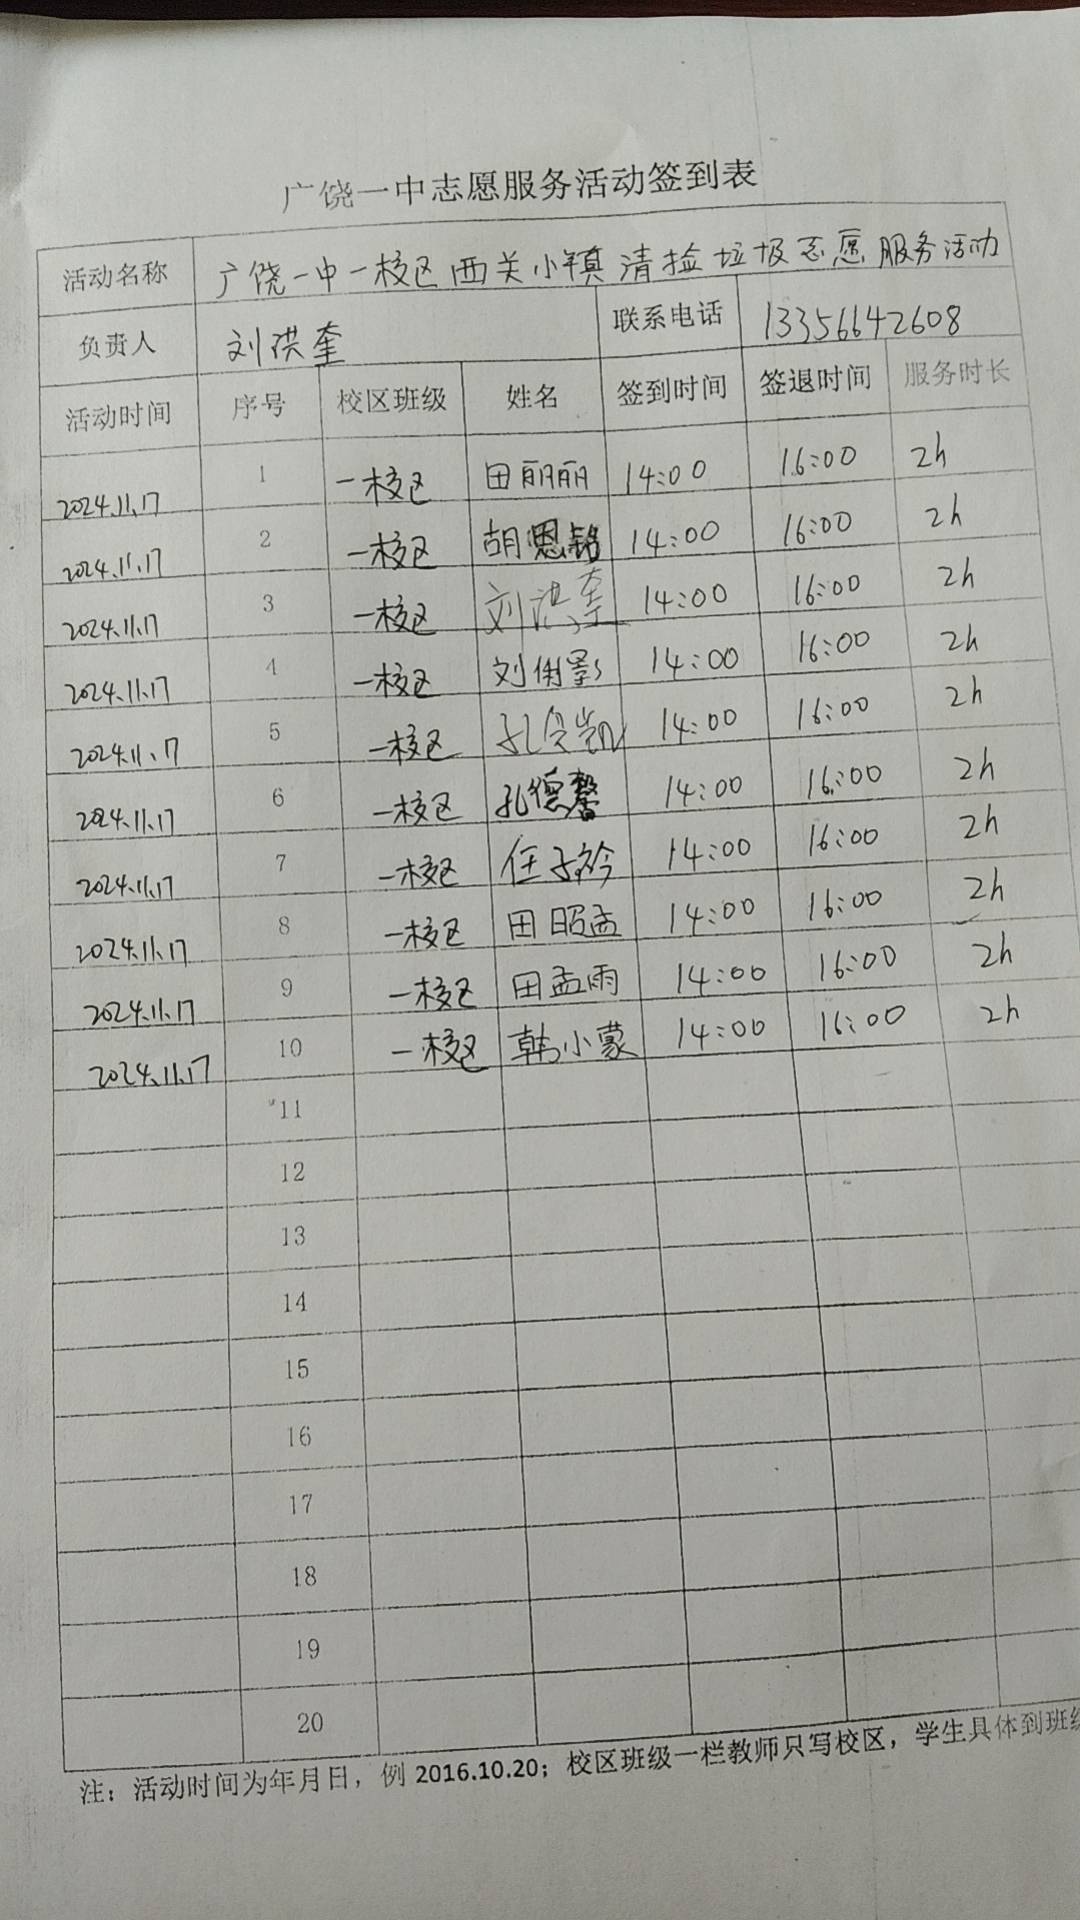 广饶一中志愿服务活动签到表
活动名称 广饶一中一校区西关小镇清捡垃圾志愿服务活动
负责人 刘洪奎 联系电话 13356642608
活动时间 序号 校区班级 姓名 签到时间 签退时间 服务时长
2024.11.17 1 一校区 田丽丽 14:00 16:00 2h
2024.11.17 2 一校区 胡恩铭 14:00 16:00 2h
2024.11.17 3 一校区 刘洪奎 14:00 16:00 2h
2024.11.17 4 一校区 刘俐影 14:00 16:00 2h
2024.11.17 5 一校区 孔凯 14:00 16:00 2h
2024.11.17 6 一校区 孔德馨 14:00 16:00 2h
2024.11.17 7 一校区 任子衿 14:00 16:00 2h
2024.11.17 8 一校区 田昭孟 14:00 16:00 2h
2024.11.17 9 一校区 田孟雨 14:00 16:00 2h
2024.11.17 10 一校区 韩小蒙 14:00 16:00 2h
11
12
13
14
15
16
17
18
19
20
注：活动时间为年月日，例 2016.10.20；校区班级一栏教师只写校区，学生具体到班级